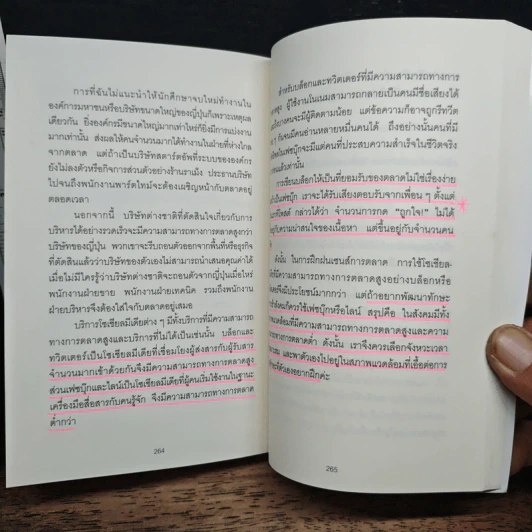 การที่ฉันไม่แนะนำให้นักศึกษาจบใหม่ทำงานใน
องค์การมหาชนหรือบริษัทขนาดใหญ่ของญี่ปุ่นก็เพราะเหตุผล
เดียวกัน ยิ่งองค์กรมีขนาดใหญ่มากเท่าไหร่ก็ยิ่งมีการแบ่งงาน
มากเท่านั้น ส่งผลให้คนจำนวนมากได้ทำงานในฝ่ายที่ห่างไกล
จากตลาด แต่ถ้าเป็นบริษัทสตาร์ตอัพที่ระบบขององค์กร
ยังไม่ลงตัวหรือกิจการส่วนตัวอย่างร้านราเม็ง ประธานบริษัท
ไปจนถึงพนักงานพาร์ตไทม์จะต้องเผชิญหน้ากับตลาดอยู่
ตลอดเวลา
นอกจากนี้ บริษัทต่างชาติที่ตัดสินใจเกี่ยวกับการ
บริหารได้อย่างรวดเร็วจะมีความสามารถทางการตลาดสูงกว่า
บริษัทของญี่ปุ่น พวกเขาจะรีบถอนตัวจากพื้นที่หรือธุรกิจ
ที่ตัดสินแล้วว่าบริษัทของตัวเองไม่สามารถนำเสนอคุณค่าได้
เมื่อไม่มีใครรู้ว่าบริษัทต่างชาติจะถอนตัวจากญี่ปุ่นเมื่อไหร่
พนักงานฝ่ายขาย พนักงานฝ่ายเทคนิค รวมถึงพนักงาน
ฝ่ายบริหารจึงต้องใส่ใจกับตลาดอยู่เสมอ
บริการโซเชียลมีเดียต่าง ๆ มีทั้งบริการที่มีความสามารถ
ทางการตลาดสูงและบริการที่ไม่ได้เป็นเช่นนั้น บล็อกและ
ทวิตเตอร์เป็นโซเชียลมีเดียที่เชื่อมโยงผู้ส่งสารกับผู้รับสาร
จำนวนมากเข้าด้วยกันจึงมีความสามารถทางการตลาดสูง
ส่วนเฟซบุ๊กและไลน์เป็นโซเชียลมีเดียที่ผู้คนเริ่มใช้งานในฐานะ
เครื่องมือสื่อสารกับคนรู้จัก จึงมีความสามารถทางการตลาด
ต่ำกว่า
264
สำหรับบล็อกและทวิตเตอร์ที่มีความสามารถทางการ
ผู้ใช้งานในเนมสามารถกลายเป็นคนมีชื่อเสียงได้
บางคนจะมีผู้ติดตามน้อย แต่ข้อความก็อาจถูกรีทวีต
ๆ กันจนมีคนอ่านหลายหมื่นคนได้ ถึงอย่างนั้นคนที่มี
เฟซบุ๊กจะมีแต่คนที่ประสบความสำเร็จในชีวิตจริง
แล้วเท่านั้น
การเขียนบล็อกให้เป็นที่ยอมรับของตลาดไม่ใช่เรื่องง่าย
เป็นเฟซบุ๊ก เราจะได้รับเสียงตอบรับจากเพื่อน ๆ ตั้งแต่
กล่าวได้ว่า จำนวนการกด "ถูกใจ!" ไม่ได้
กับความน่าสนใจของเนื้อหา แต่ขึ้นอยู่กับจำนวนคน
ดังนั้น ในการฝึกฝนเซนส์การตลาด การใช้โซเชียล
ที่มีความสามารถทางการตลาดสูงอย่างบล็อกหรือ
จึงมีประโยชน์มากกว่า แต่ถ้าอยากพัฒนาทักษะ
ก็ควรใช้เฟซบุ๊กหรือไลน์ สรุปคือ ในสังคมมีทั้ง
ที่มีความสามารถทางการตลาดสูงและความ
ทางการตลาดต่ำ ดังนั้น เราจึงควรเลือกจังหวะเวลา
และพาตัวเองไปอยู่ในสภาพแวดล้อมที่เอื้อต่อการ
ที่ตัวเองอยากฝึกค่ะ
265